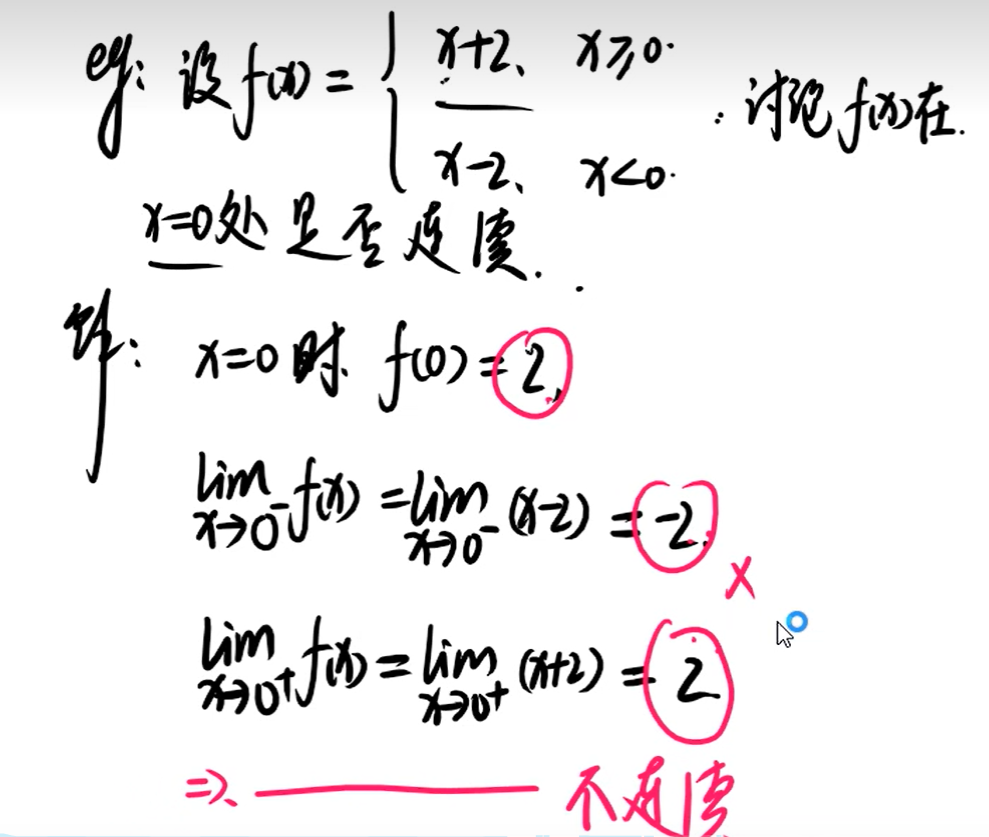 eg: 设 f(x) = { x+2、 x≥0.
x-2、 x<0.
讨论 f(x)在.
x=0处是否连续.
解: x=0时. f(0)=2,
lim x→0⁻ f(x) = lim x→0⁻ (x-2) = -2.
×
lim x→0⁺ f(x) = lim x→0⁺ (x+2) = 2
⇒、 ——— 不连续